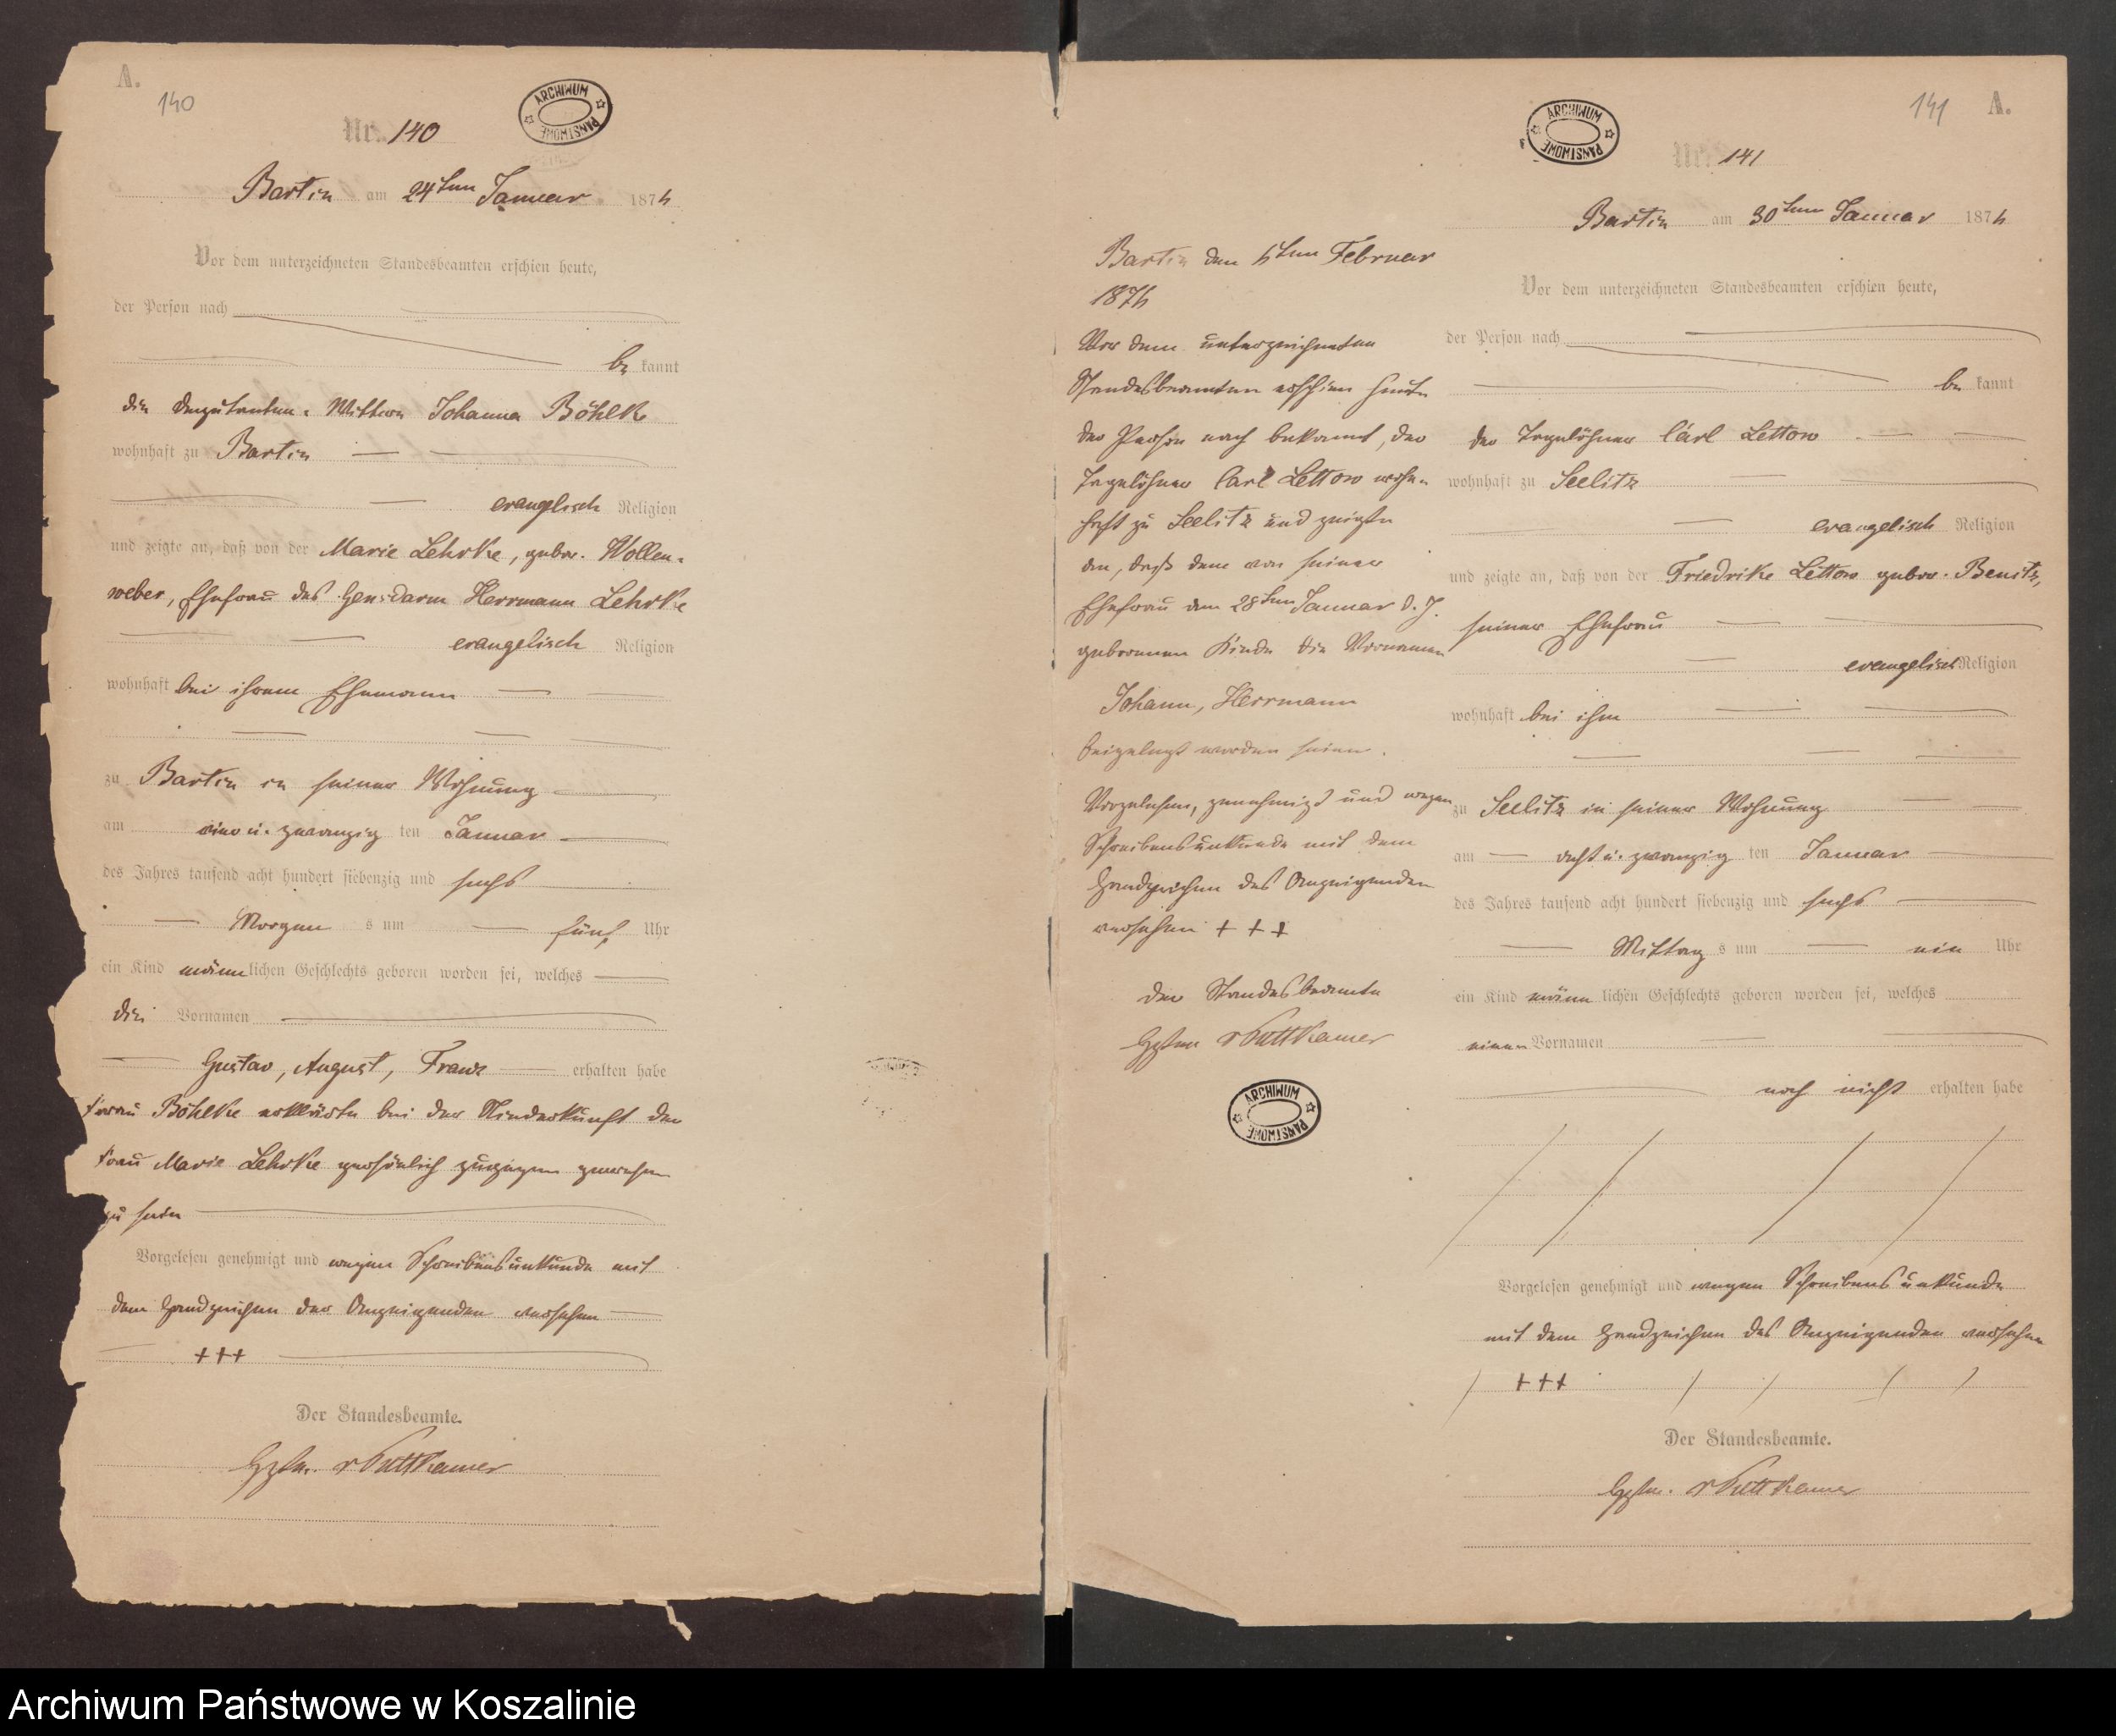 A.
140
ARCHIWUM PAŃSTWOWE
Nr. 140
Bartin am 24ten Januar 1876
Vor dem unterzeichneten Standesbeamten erschien heute,
der Person nach
be kannt
die Deputanten-Wittwe Johanna Böhlke
wohnhaft zu Bartin
evanglisch Religion
und zeigte an, daß von der Marie Lehrke, gebor. Wollen-
weber, Ehefrau des Gensdarm Herrmann Lehrke
evangelisch Religion
wohnhaft bei ihrem Ehemann
zu Bartin in seiner Wohnung
am ein u. zwanzig ten Januar
des Jahres tausend acht hundert siebenzig und sechs
Morgen s um fünf Uhr
ein Kind männlichen Geschlechts geboren worden sei, welches
die Vornamen
Gustav, August, Franz erhalten habe
Frau Böhlke erklärte bei der Niederkunft der
Frau Marie Lehrke persönlich zugegen gewesen
zu sein
Vorgelesen genehmigt und wegen Schreibensunkunde mit
dem Handzeichen der Anzeigenden versehen
+++
Der Standesbeamte.
v Puttkamer
141 A.
ARCHIWUM PAŃSTWOWE
Nr. 141
Bartin am 30ten Januar 1876
Vor dem unterzeichneten Standesbeamten erschien heute,
der Person nach
be kannt
der Tagelöhner Carl Lettow
wohnhaft zu Seelitz
evangelisch Religion
und zeigte an, daß von der Friedrike Lettow gebor. Benitz,
seiner Ehefrau
evangelisch Religion
wohnhaft bei ihm
zu Seelitz in seiner Wohnung
am acht u. zwanzig ten Januar
des Jahres tausend acht hundert siebenzig und sechs
Mittag s um ein Uhr
ein Kind männ lichen Geschlechts geboren worden sei, welches
einen Vornamen
noch nicht erhalten habe
Vorgelesen genehmigt und wegen Schreibensunkunde
mit dem Handzeichen des Anzeigenden versehen
+++
Der Standesbeamte.
v Puttkamer
Bartin den 6ten Februar
1876
Vor dem unterzeichneten
Standesbeamten erschien heute
der Person nach bekannt, der
Tagelöhner Carl Lettow wohn-
haft zu Seelitz und zeigte
an, daß dem von seiner
Ehefrau am 28ten Januar d. J.
geborenen Kinde die Vornamen
Johann, Herrmann
beigelegt worden seien.
Vorgelesen, genehmigt und wegen
Schreibensunkunde mit dem
Handzeichen des Anzeigenden
versehen +++
Der Standesbeamte
v Puttkamer
ARCHIWUM PAŃSTWOWE
Archiwum Państwowe w Koszalinie